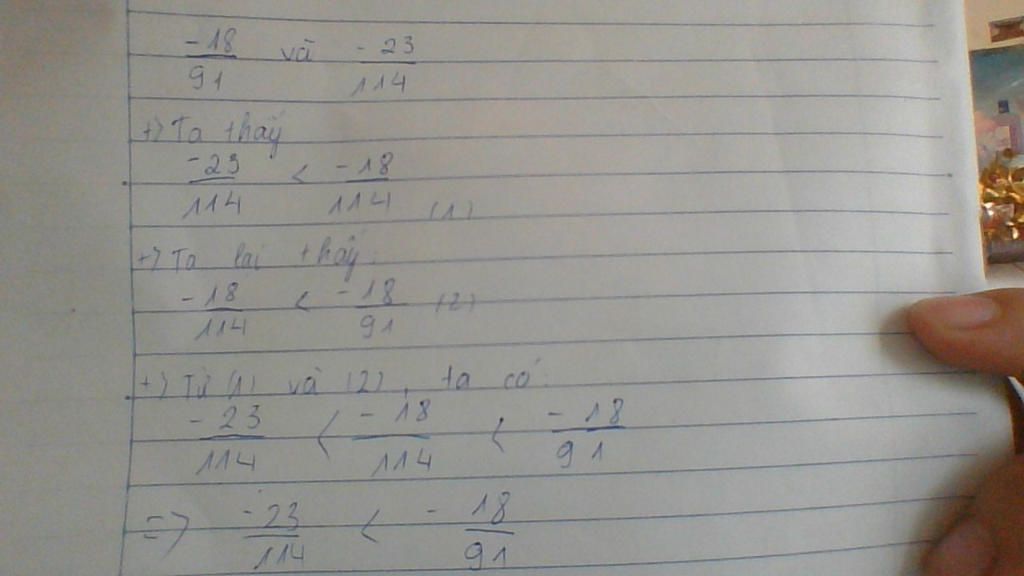 -18/91 và -23/114
+) Ta thấy
-23/114 < -18/114 (1)
+) Ta lại thấy:
-18/114 < -18/91 (2)
+) Từ (1) và (2), ta có:
-23/114 < -18/114 < -18/91
=> -23/114 < -18/91